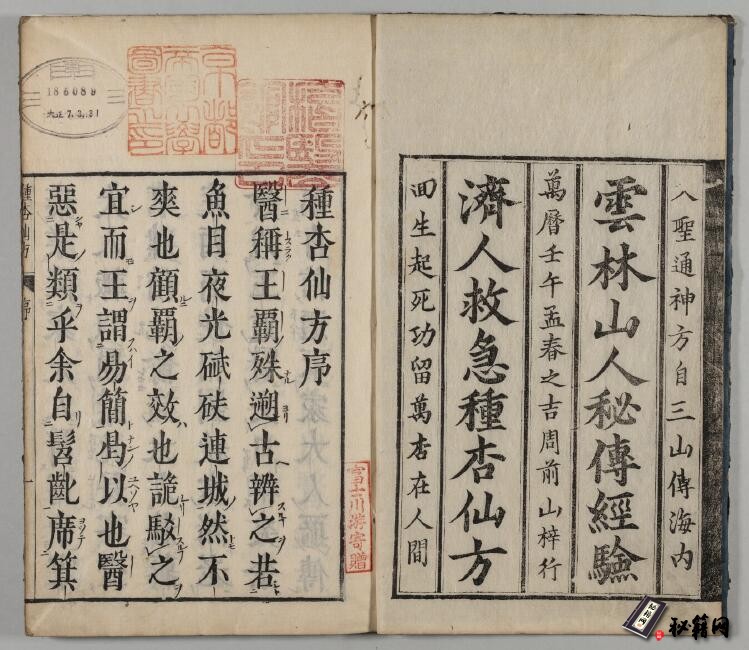 入聖通神方自三山傳海内
雲林山人秘傳經驗
萬曆壬午孟春之吉周前山梓行
濟人救急種杏仙方
囬生起死功留萬杏在人間
種杏仙方序
醫稱王覇殊遡古辨之若
魚目夜光碔砆連城然不
爽也顧覇之效也詭駁之
宜而王謂易簡曷以也醫
惡是類乎余自髫齔席箕
種杏仙方 序 一
京都帝國大學圖書之印
186089
大正7.3.31
富士川游寄贈
秘籍网